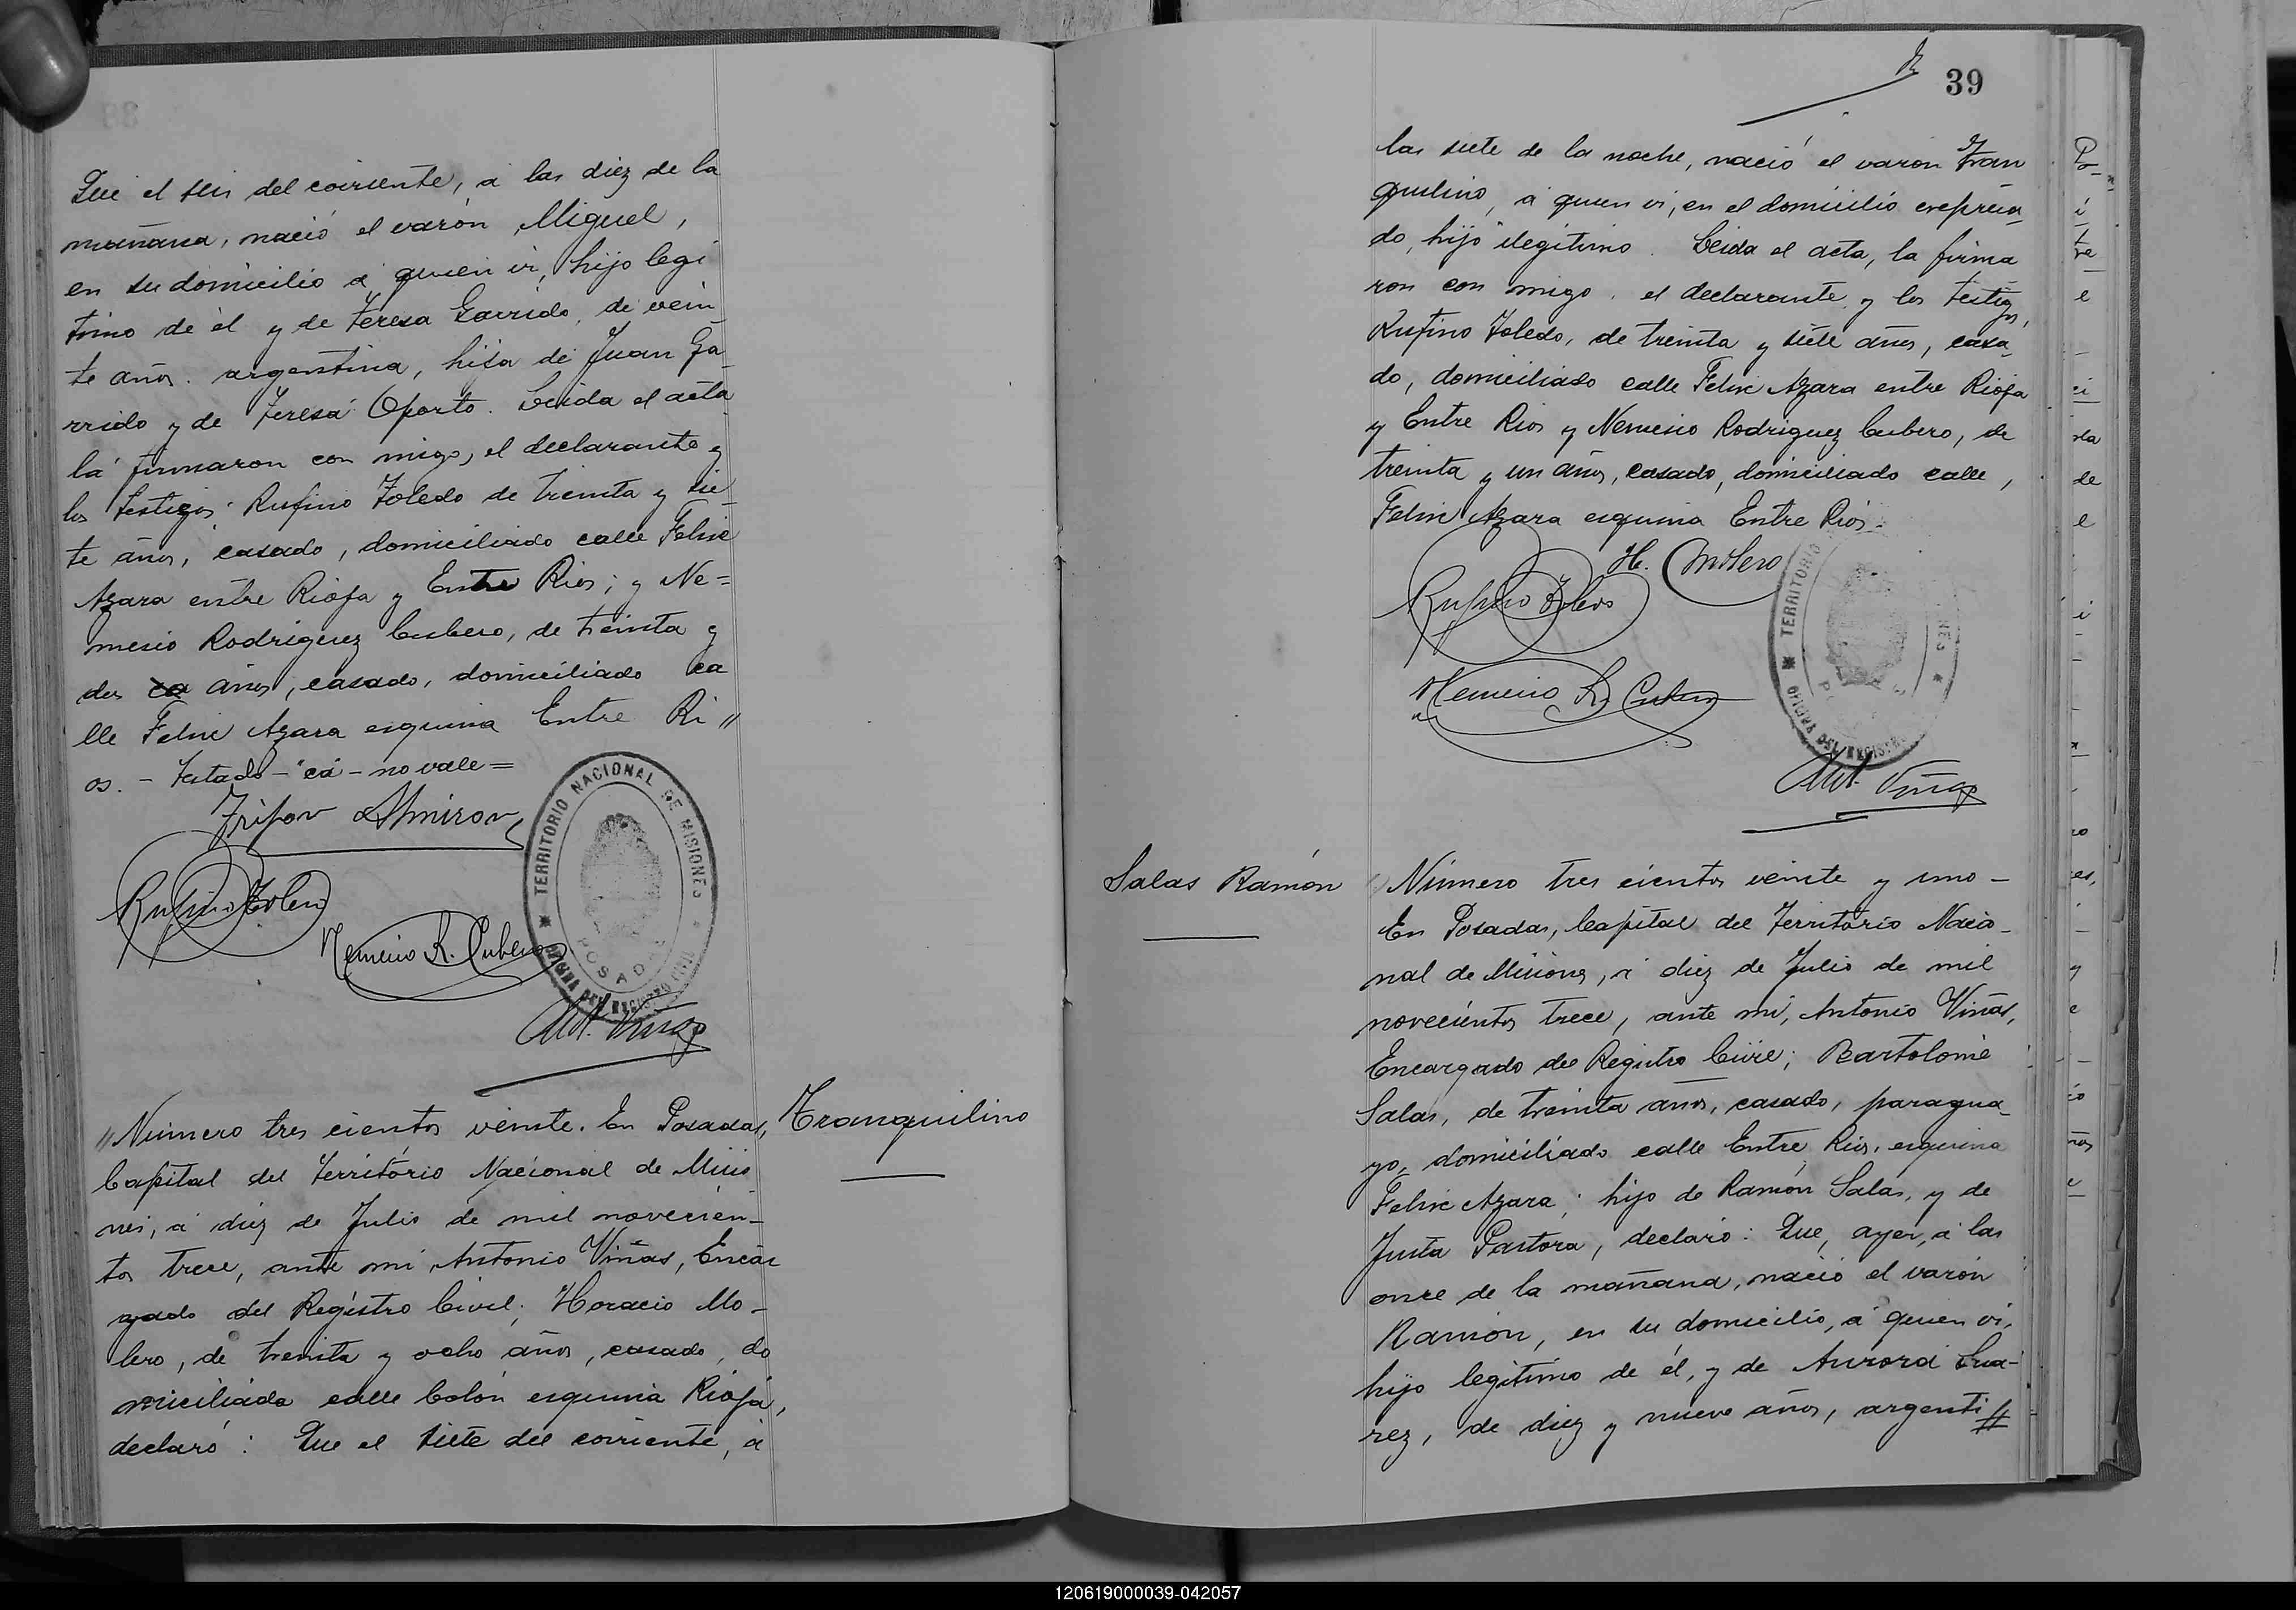 Que el seis del corriente, á las diez de la
mañana, nació el varón Miguel,
en su domicilio á quien ví, hijo legí
timo de él y de Teresa Garrido, de vein
te años. argentina, hija de Juan Ga
rrido y de Teresa Oporto. Leida el acta
la firmaron con migo, el declarante y
los testigos: Rufino Toledo de treinta y sie
te años, casado, domiciliado calle Felix
Azara entre Rioja y Entre Rios; y Ne=
mesio Rodriguez Cubero, de treinta y
dos ca años, casado, domiciliado ca
lle Felix Azara esquina Entre Ri"
os. - Testado - "ca - no vale =
Trifon Almiron
Rufino Toledo
Nemesio R. Cubero
TERRITORIO NACIONAL DE MISIONES
POSADAS
OFICINA DEL REGISTRO CIVIL
Ant. Viñas
"Número tres cientos veinte. En Posadas,
Tranquilino
Capital del Territorio Nacional de Misio
nes, á diez de Julio de mil novecien-
tos trece, ante mi Antonio Viñas, Encar
gado del Registro Civil; Horacio Mo-
lero, de treinta y ocho años, casado, do
miciliado calle Colón esquina Rioja,
declaró: Que el siete del corriente, á
39
las siete de la noche, nació el varon Tran
quilino, á quien ví, en el domicilio expresa
do, hijo ilegitimo. Leida el acta, la firma
ron con migo, el declarante y los testigos,
Rufino Toledo, de treinta y siete años, casa-
do, domiciliado calle Felix Azara entre Rioja
y Entre Rios y Nemesio Rodriguez Cubero, de
treinta y un años, casado, domiciliado calle,
Felix Azara esquina Entre Rios.
H. Molero
Rufino Toledo
Nemesio R. Cubero
TERRITORIO
Ant. Viñas
Salas Ramón
Número tres cientos veinte y uno -
En Posadas, Capital del Territorio Nacio-
nal de Misiones, á diez de Julio de mil
novecientos trece, ante mi, Antonio Viñas,
Encargado del Registro Civil; Bartolomé
Salas, de treinta años, casado, paragua-
yo, domiciliado calle Entre Rios, esquina
Felix Azara; hijo de Ramón Salas, y de
Justa Pastora, declaró: Que, ayer, á las
once de la mañana, nació el varón
Ramón, en su domicilio, á quien ví,
hijo legítimo de él, y de Aurora Sua-
rez, de diez y nueve años, argenti//
120619000039-042057